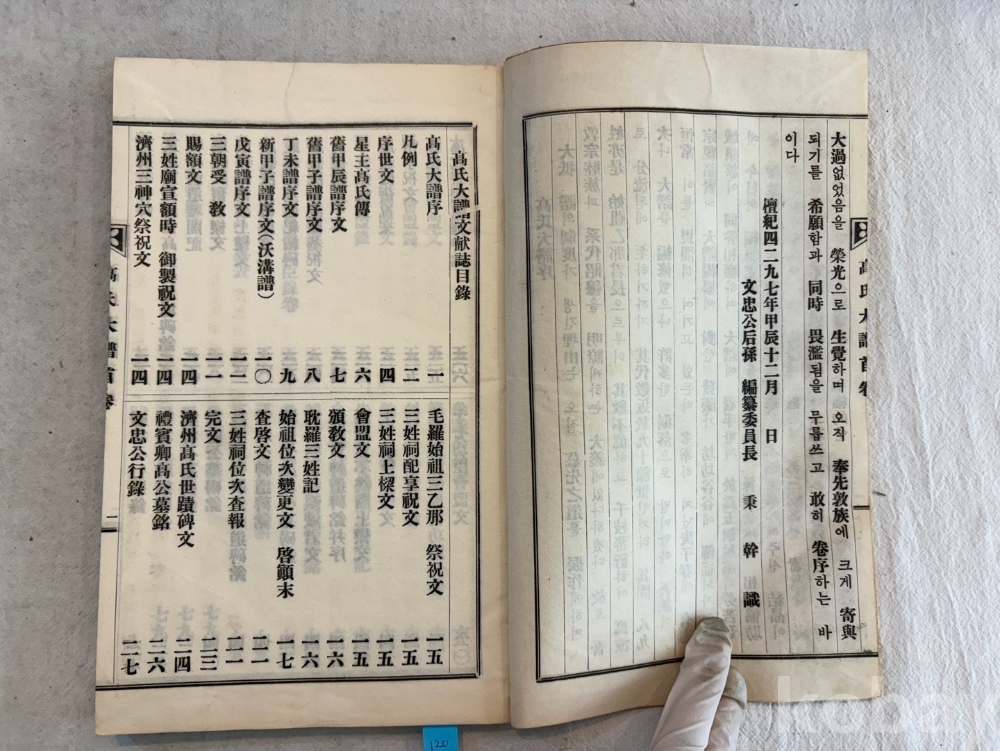 大過없었음을 榮光으로 生覺하며 오직 奉先敦族에 크게 寄與
되기를 希願함과 同時 畏濫됨을 무릅쓰고 敢히 卷序하는 바
이다
檀紀四二九七年甲辰十二月 日
文忠公后孫 編纂委員長 秉幹 識
高氏大譜首卷
高氏大譜文献誌目錄
高氏大譜序 一
凡例 三
序世文 四
星主高氏傳 六
舊甲辰譜序文 七
舊甲子譜序文 八
丁未譜序文 九
新甲子譜序文(沃溝譜) 一〇
戊寅譜序文 一二
三朝受 敎 一一
賜額文 一四
三姓廟宣額時 御製祝文 一四
濟州三神穴祭祝文 一四
毛羅始祖三乙那 祭祝文 一五
三姓祠配享祝文 一五
三姓祠上樑文 一五
會盟文 一五
頒敎文 一六
耽羅三姓記 一六
始祖位次變更文 啓顚末 一七
査啓文 二一
三姓祠位次査報 二一
完文 二三
濟州高氏世蹟碑文 二四
禮賓卿高公墓銘 二六
文忠公行錄 二七
高氏大譜首卷
一
120
kobay